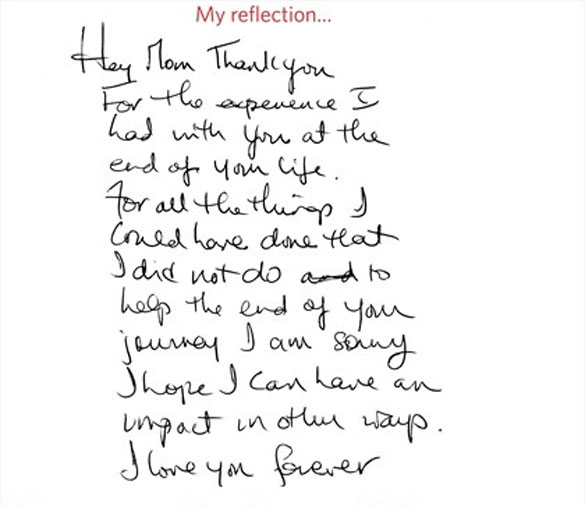 My reflection...
Hey Mom Thank you
For the experience I
had with you at the
end of your life.
For all the things I
Could have done that
I did not do and to
help the end of your
journey I am sorry
I hope I can have an
impact in other ways.
I love you forever